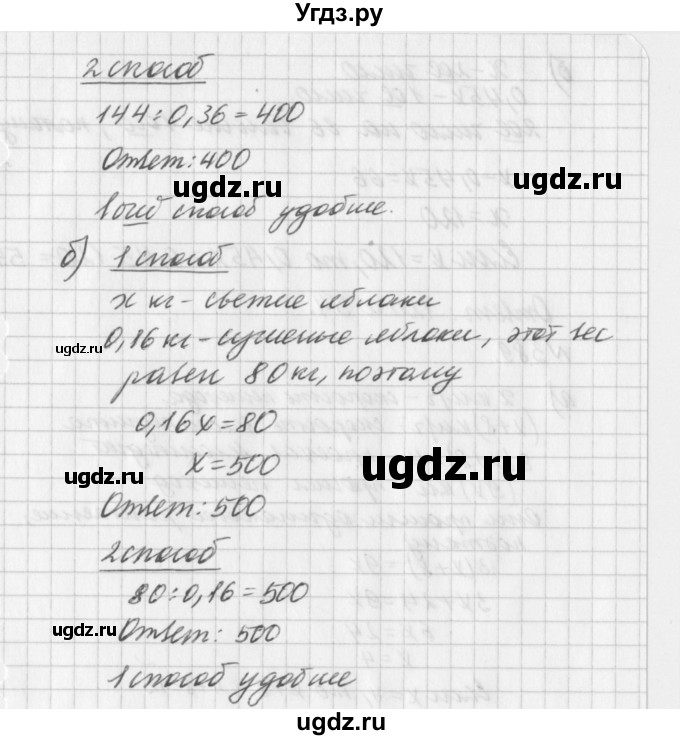 Угдз.ру
2 способ
144÷0,36=400
Ответ: 400
1ый способ удобнее.
б) 1 способ
х кг - свежие яблоки
0,16 кг - сушеные яблоки, этот вес
равен 80кг, поэтому
0,16х=80
х=500
Ответ: 500
2способ
80÷0,16=500
Ответ: 500
1 способ удобнее
ugdz.ru
ugdz.ru
ugdz.ru
ugdz.ru
ugdz.ru
ugdz.ru
ugdz.ru
ugdz.ru
ugdz.ru